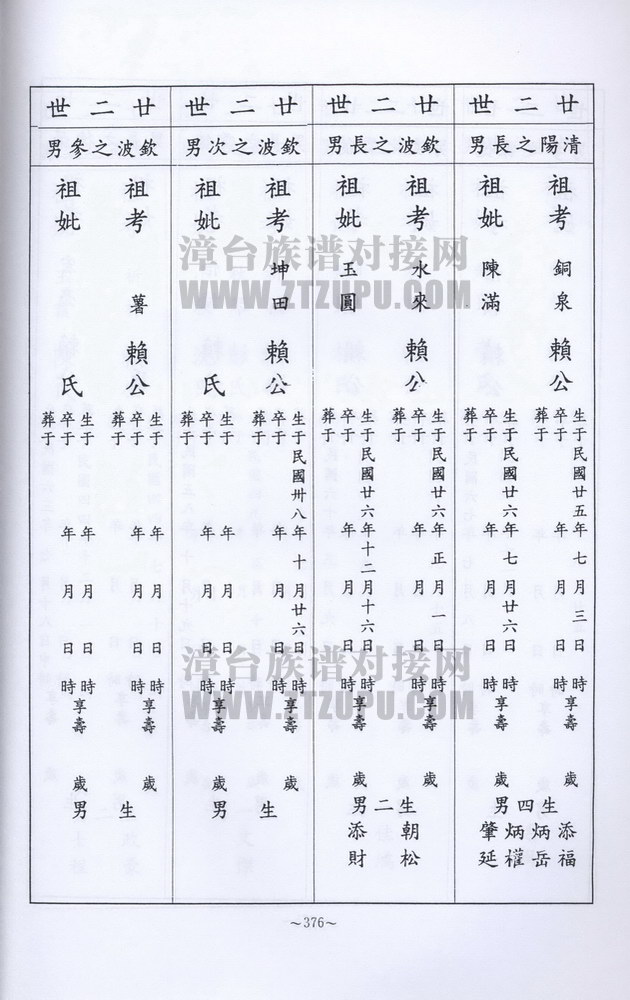 廿二世
清陽之長男
祖考 銅泉 賴公
生于民國廿五年七月三日時享壽 歲
卒于 年 月 日時
葬于
祖妣 陳滿
生于民國廿六年七月廿六日時享壽
卒于 年 月 日時 歲
葬于
生四男
添福
炳岳
炳權
肇延
廿二世
欽波之長男
祖考 水來 賴公
生于民國廿六年正月一日時享壽 歲
卒于 年 月 日時
葬于
祖妣 玉圓
生于民國廿六年十二月十六日時享壽 歲
卒于 年 月 日時
葬于
生二男
朝松
添財
廿二世
欽波之次男
祖考 坤田 賴公
生于民國卅八年十月廿六日時享壽 歲
卒于 年 月 日時
葬于
祖妣 氏
生于 年 月 日時享壽 歲
卒于 年 月 日時
葬于
生 男
廿二世
欽波之參男
祖考 薯 賴公
生于 年 月 日時享壽 歲
卒于 年 月 日時
葬于
祖妣 氏
生于 年 月 日時享壽 歲
卒于 年 月 日時
葬于
生 男
～376～
漳台族谱对接网
WWW.ZTZUPU.COM
漳台族谱对接网
WWW.ZTZUPU.COM